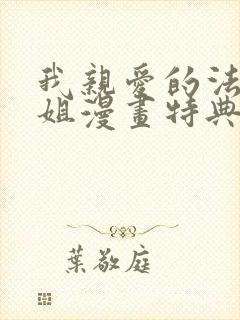 我親愛的法
姐漫畫特典
葉敬庭